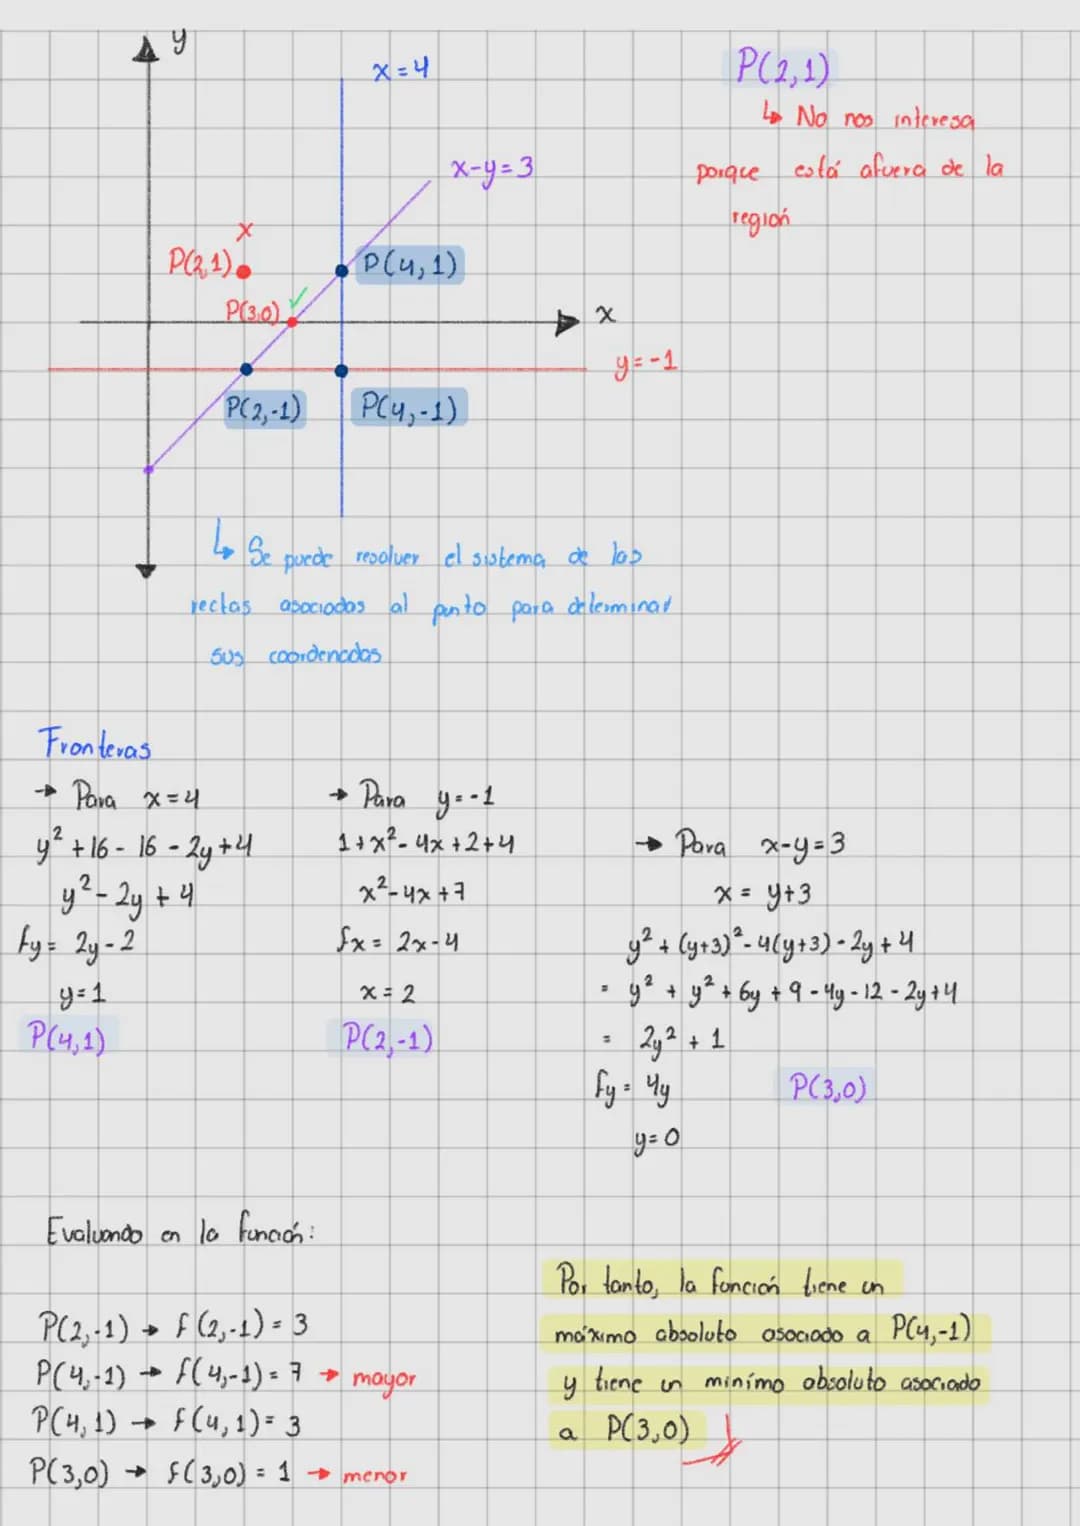 y
x=4
x-y=3
x
P(2,1)
P(4,1)
P(3,0)
✓
x
y=-1
P(2,-1)
P(4,-1)
P(2,1)
↳ No nos interesa
porque está afuera de la
región
↳ Se puede resolver el sistema de las
rectas asociadas al punto para determinar
sus coordenadas
Fronteras
→ Para x=4
y² + 16 - 16 - 2y + 4
y² - 2y + 4
fy = 2y - 2
y = 1
P(4,1)
→ Para y=-1
1 + x² - 4x + 2 + 4
x² - 4x + 7
fx = 2x - 4
x = 2
P(2,-1)
→ Para x-y=3
x = y+3
y² + (y+3)² - 4(y+3) - 2y + 4
= y² + y² + 6y + 9 - 4y - 12 - 2y + 4
= 2y² + 1
fy = 4y
P(3,0)
y = 0
Evaluando en la función:
P(2,-1) → f(2,-1) = 3
P(4,-1) → f(4,-1) = 7 → mayor
P(4,1) → f(4,1) = 3
P(3,0) → f(3,0) = 1 → menor
Por tanto, la función tiene un
máximo absoluto asociado a P(4,-1)
y tiene un minímo absoluto asociado
a P(3,0)